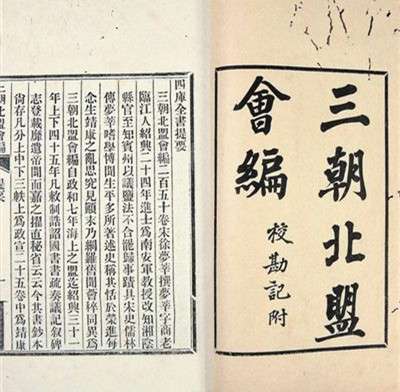 三朝北盟
會編
校勘記附
四庫全書提要
三朝北盟會編二百五十卷宋徐夢莘撰夢莘字商老
臨江人紹興二十四年進士為南安軍教授改知湘陰
縣官至知賓州以議鹽法不合罷歸事蹟具宋史儒林
傳夢莘嗜學博聞生平多所著述史稱其恬於榮進每
念生靖康之亂思究見顛末乃網羅舊聞薈稡同異為
三朝北盟會編自政和七年海上之盟迄紹興三十一
年上下四十五年凡敕制誥詔國書書疏奏議記叙碑
志登載靡遺帝聞而嘉之擢直秘省云云今其書鈔本
尚存凡分上中下三帙上為政宣二十五卷中為靖康
三朝北盟會編